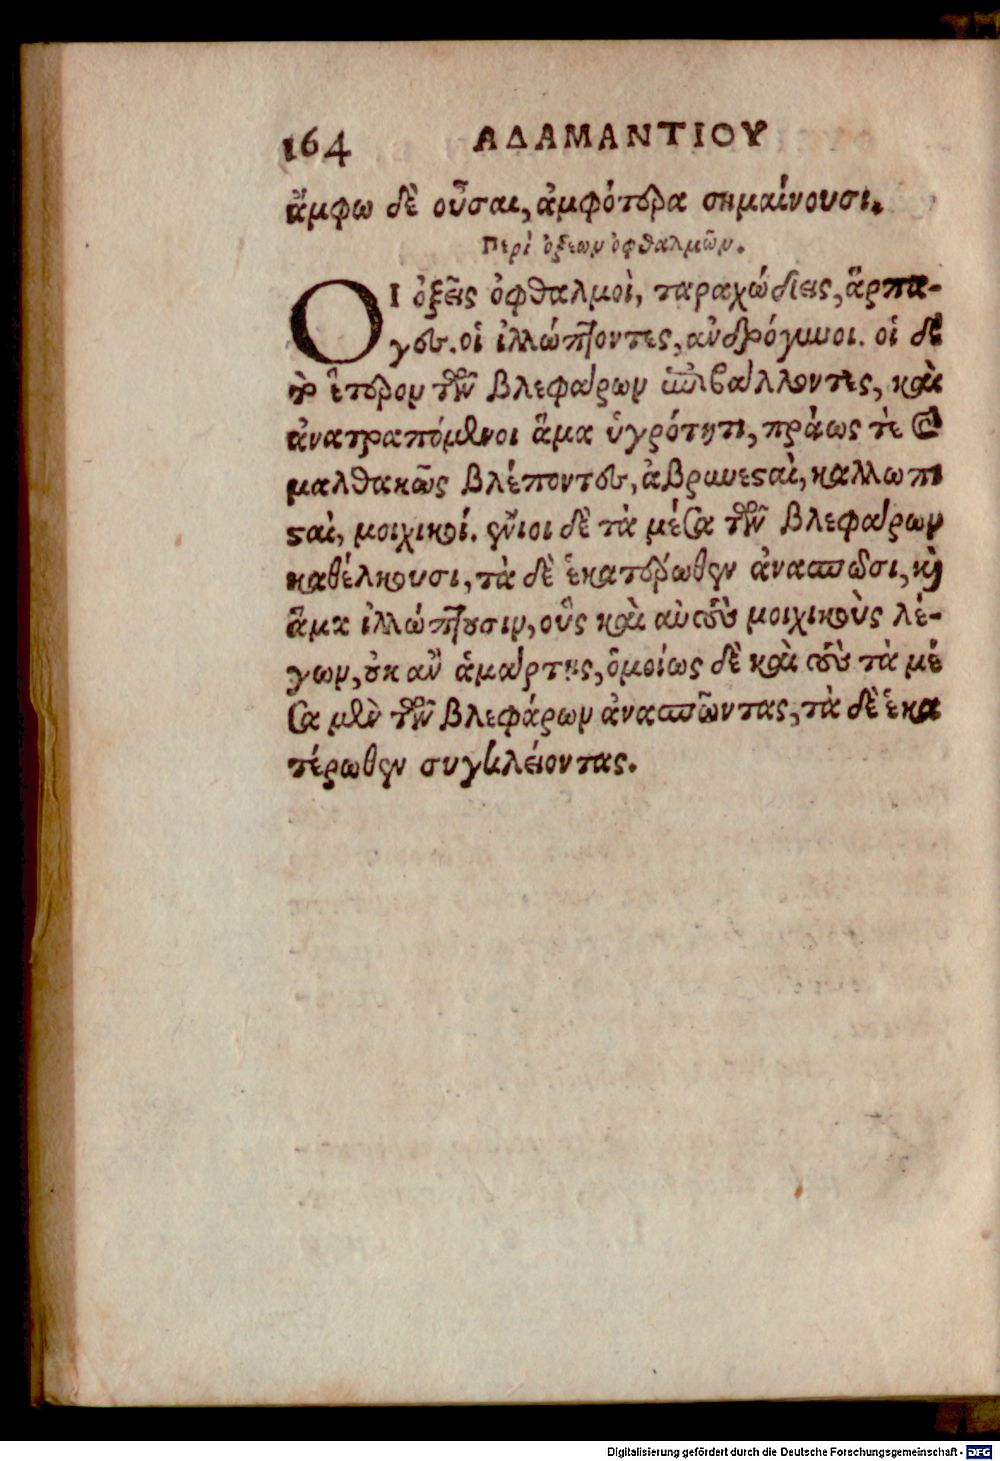 164 ΑΔΑΜΑΝΤΙΟΥ
ἄμφω δὲ οὖσαι, ἀμφότερα σημαίνουσι.
Περὶ ὀξέων ὀφθαλμῶν.
ΟΙ ὀξεῖς ὀφθαλμοὶ, ταραχώδεις, ἅρπα-
γες. οἱ ἰλλώπτοντες, ἀνδρόγυνοι. οἱ δὲ
τὸ ἕτερον τῶν βλεφάρων ὑπερβάλλοντες, καὶ
ἀνατραπόμενοι ἅμα ὑγρότητι, πράως τὲ καὶ
μαλθακῶς βλέποντες, ἁβρυνεσαὶ, καλλωπι
ϛαὶ, μοιχικοί. ἔνιοι δὲ τὰ μέσα τῶν βλεφάρων
καθέλκουσι, τὰ δὲ ἑκατέρωθεν ἀνασπῶσι, καὶ
ἅμα ἰλλώπτουσιν, οὓς καὶ αὐτοὺς μοιχικοὺς λέ-
γων, οὐκ ἂν ἁμάρτης, ὁμοίως δὲ καὶ τοὺς τὰ μέ
σα μὲν τῶν βλεφάρων ἀνασπῶντας, τὰ δὲ ἑκα
τέρωθεν συγκλείοντας.
Digitalisierung gefördert durch die Deutsche Forschungsgemeinschaft - DFG